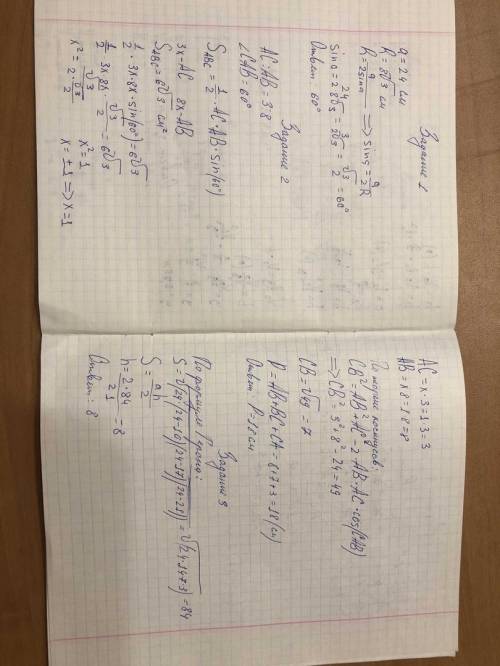 Задание 1
a = 24 см
R = 8√3 см
R = a/2sinα ⟹ sin = a/2R
sinα = 24/2·8√3 = 3/2√3 = √3/2 = 60°
Ответ 60°
Задание 2
AC:AB = 3:8
∠CAB = 60°
S ABC = 1/2 · AC · AB · sin(60°)
3x - AC 8x - AB
S ABC = 6√3 см²
1/2 · 3x · 8x · sin(60°) = 6√3
1/2 · 3x · 8x · √3/2 = 6√3
x² = x² = 1
x = ±1 ⟹ x = 1
AC = x·3 = 1·3 = 3
AB = x·8 = 1·8 = 8
По теореме косинусов:
CB² = AB² + AC² - 2·AB·AC·cos(CAB)
⟹ CB² = 3² + 8² - 24 = 49
CB = √49 = 7
P = AB + BC + CA = 8+7+3 = 18 (см)
Ответ P = 18 см
Задание 3
По формуле Герона:
S = √(24·(24-10)(24-17)(24-21)) = √(24·14·7·3) = 84
S = ah/2
h = 2·84/21 = 8
Ответ: 8